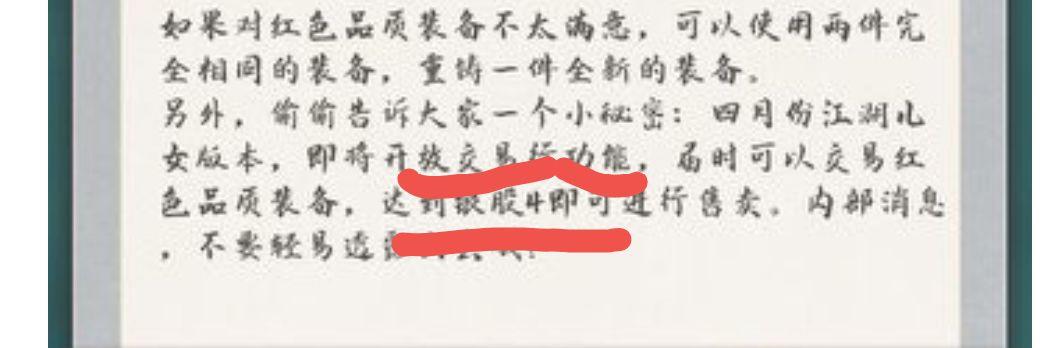 如果对红色品质装备不太满意，可以使用两件完
全相同的装备，重铸一件全新的装备。
另外，偷偷告诉大家一个小秘密：四月份江湖儿
女版本，即将开放交易行功能，届时可以交易红
色品质装备，达到散股4即可进行售卖。内部消息
，不要轻易透露